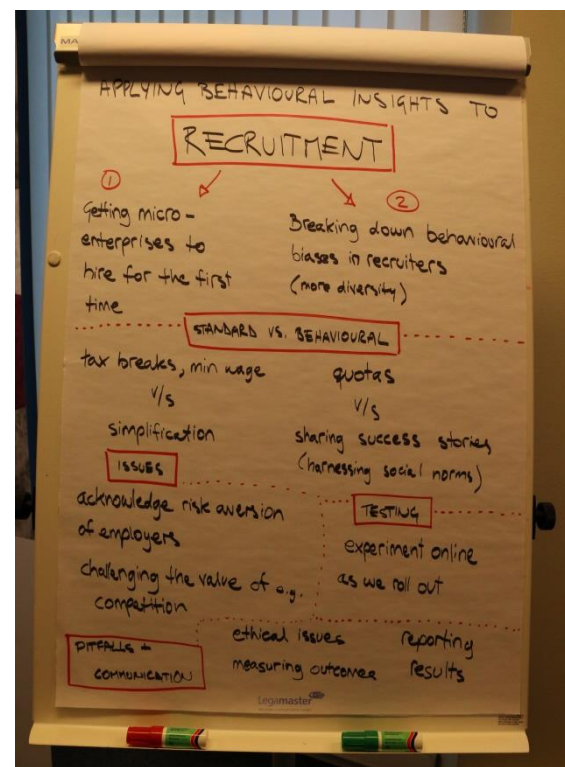 MA
APPLYING BEHAVIOURAL INSIGHTS TO
RECRUITMENT
1
Getting micro-
enterprises to
hire for the first
time
2
Breaking down behavioural
biases in recruiters
(more diversity)
STANDARD VS. BEHAVIOURAL
tax breaks, min wage
V/s
simplification
quotas
V/s
sharing success stories
(harnessing social norms)
ISSUES
acknowledge risk aversion
of employers
challenging the value of e.g.
competition
TESTING
experiment online
as we roll out
PITFALLS +
COMMUNICATION
ethical issues
measuring outcomes
reporting
results
Legamaster